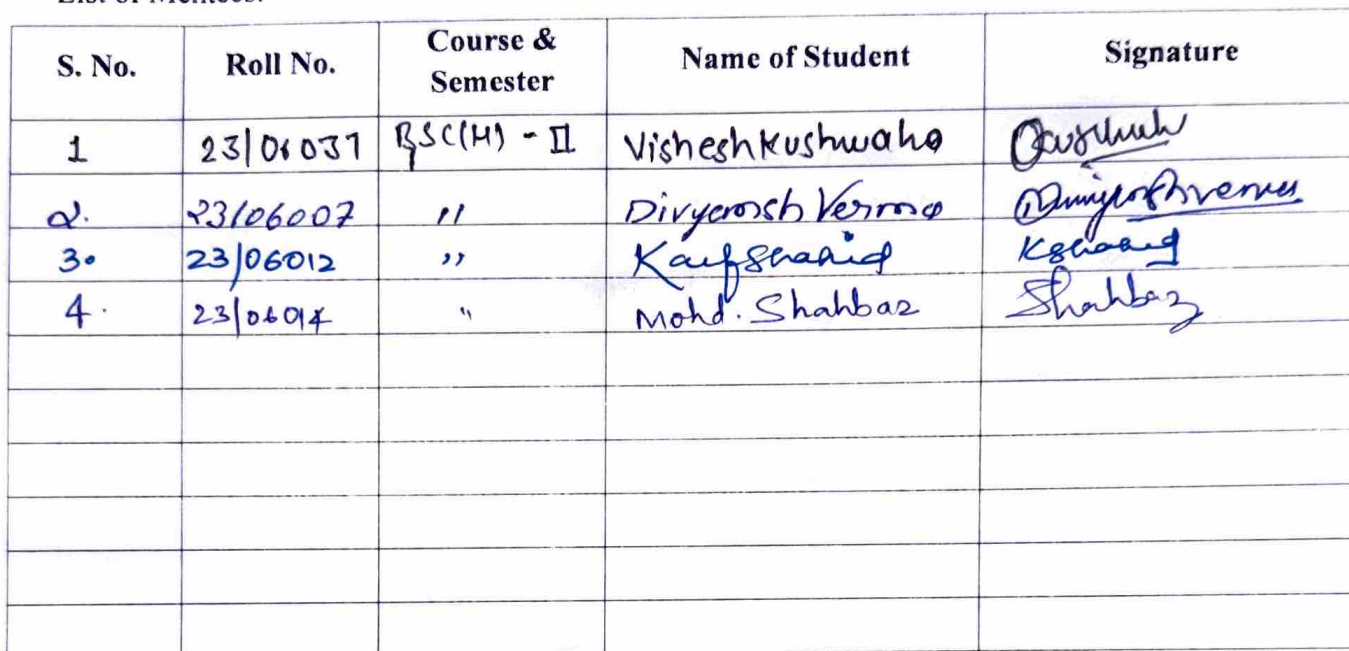 S. No. Roll No. Course & Semester Name of Student Signature
1 23/06037 BSC(H) - II Vishesh Kushwaha
2. 23/06007 " Divyansh Verma
3. 23/06012 " Kaif Shahid KShahid
4. 23/06014 " Mohd. Shahbaz Shahbaz